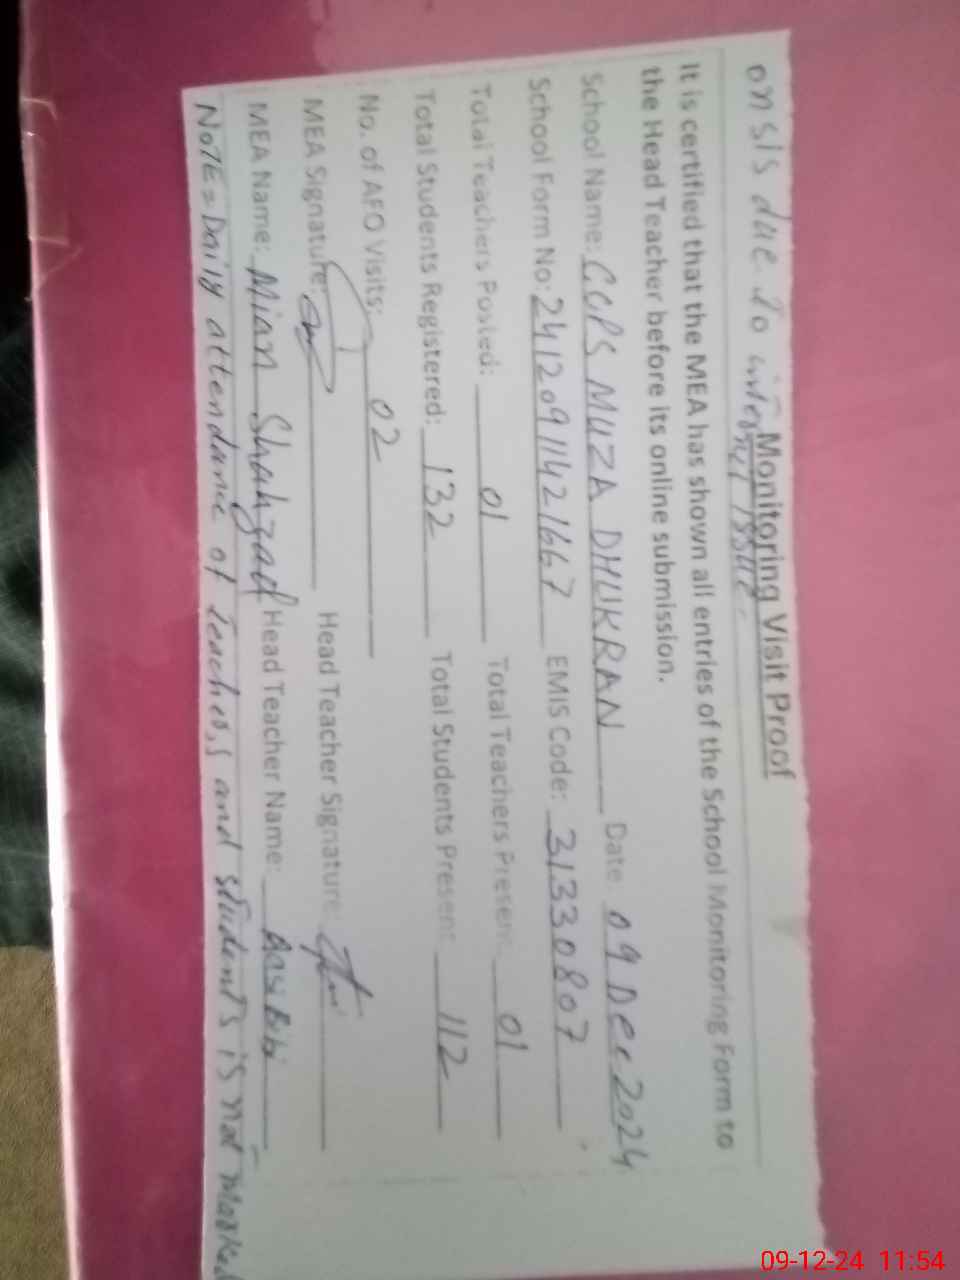 on sis due to internet issue.
Monitoring Visit Proof
It is certified that the MEA has shown all entries of the School Monitoring Form to
the Head Teacher before its online submission.
School Name: GGPS MUZA DHUKRAN Date: 09 Dec 2024
School Form No: 24120911421667 EMIS Code: 31330807
Total Teachers Posted: 01 Total Teachers Present: 01
Total Students Registered: 132 Total Students Present: 112
No. of AFO Visits: 02
MEA Signature: Head Teacher Signature:
MEA Name: Mian Shahzad Head Teacher Name: Bibi
NOTE = Daily attendance of teachers and students is not marked
09-12-24 11:54